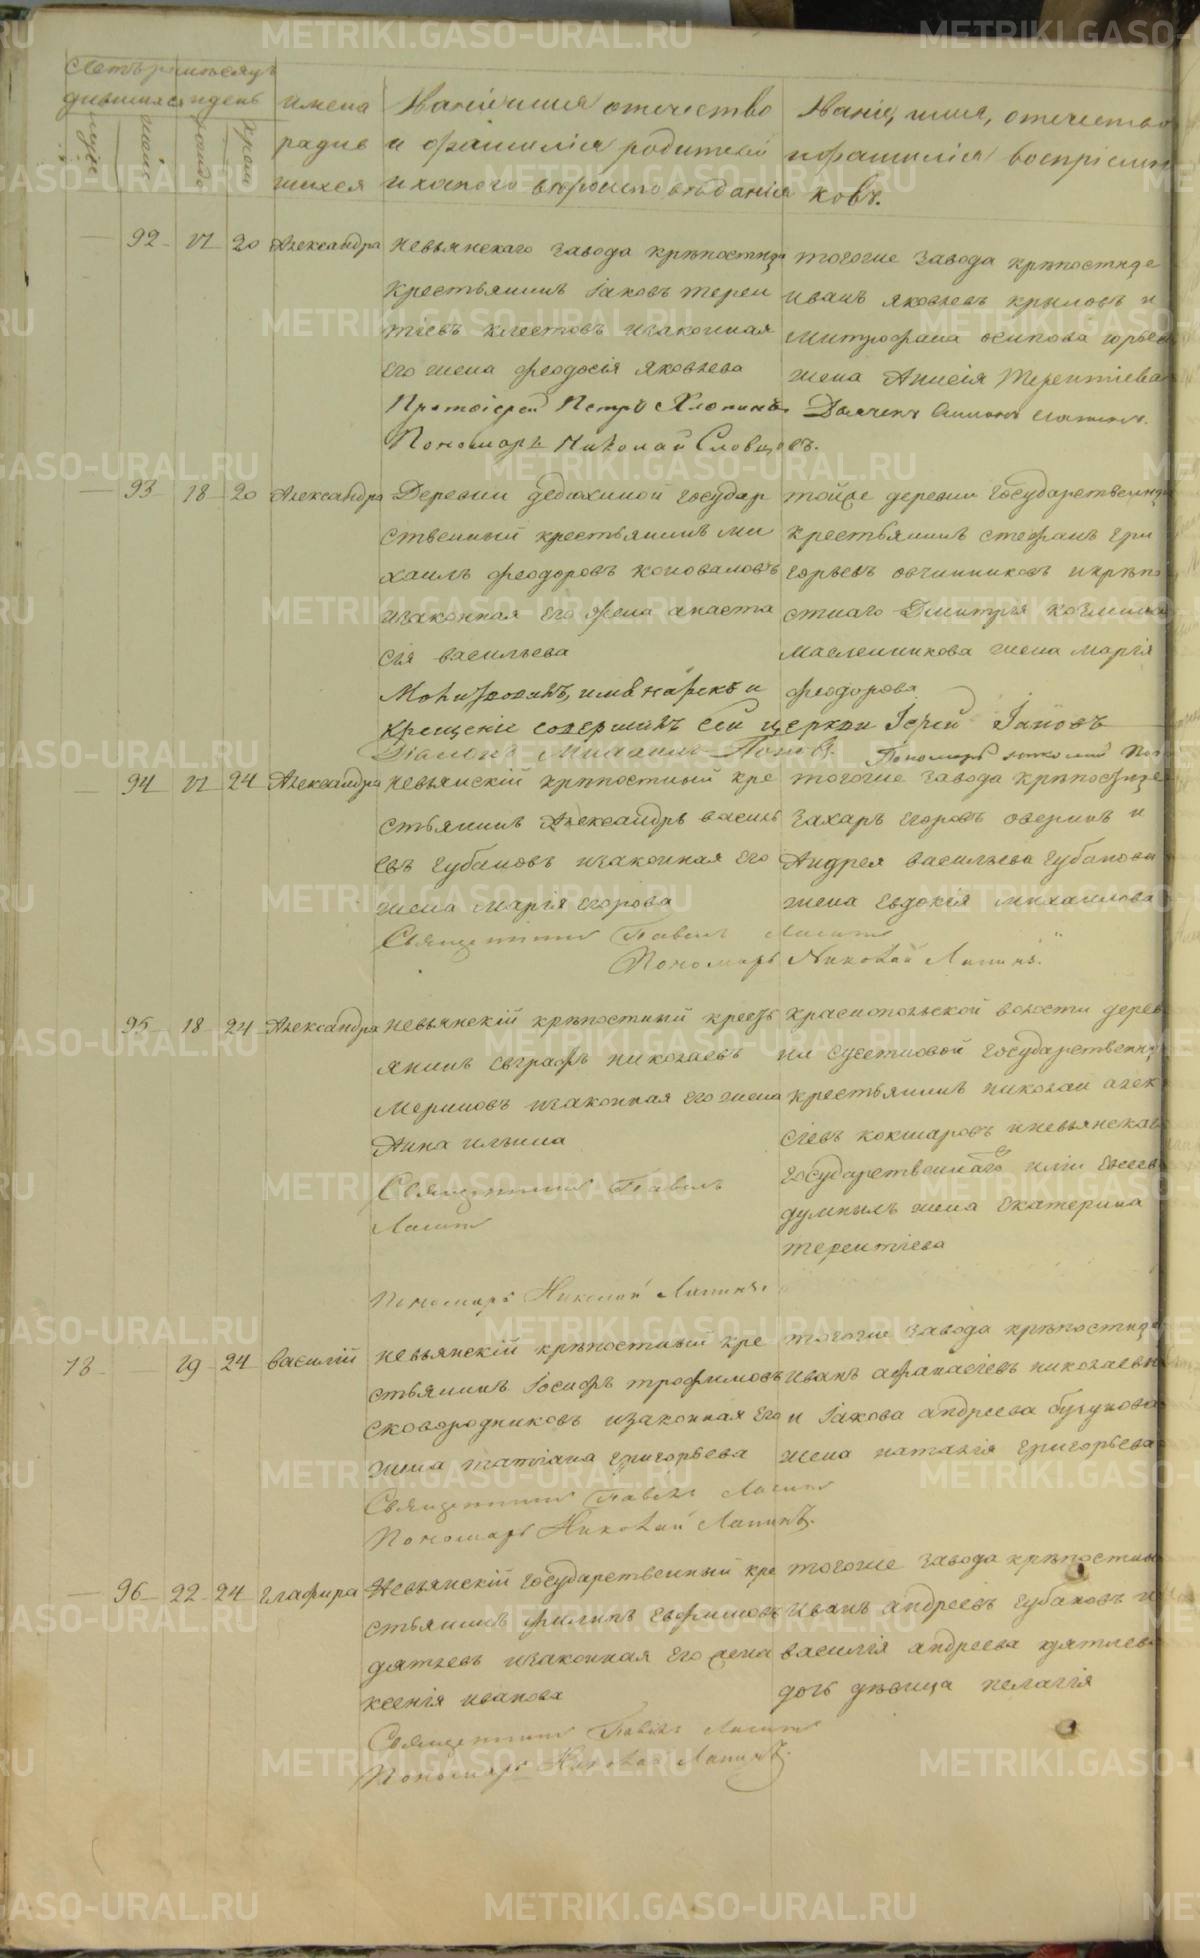 Счетъ родившихся
Мѣсяцъ и день
муже
жен
рожд
крещ
имена
родив
шихся
Званіе имя отечество
и фамилія родителей
и какого вѣроисповѣданія
Званіе, имя, отечество
и фамилія воспріемни
ковъ.
92 17 20 Александра
Невьянскаго завода крѣпостной
крестьянинъ Іаковъ терен
тіевъ клестовъ изаконная
его жена феодосія Яковлева
Протоіерей Петръ Хлопинъ
Пономарь Николай Словцовъ.
тогоже завода крѣпостные
иванъ яковлевъ крыловъ и
митрофана осипова
жена Анисія Терентіева
Дьячекъ
93 18 20 Александра
Деревни федюхиной государ
ственный крестьянинъ ми
хаилъ феодоровъ коноваловъ
изаконная его жена анаста
сія васильева
Молитвовалъ, имя нарекъ и
крещеніе совершилъ сей церкви Іерей Іаковъ
Діаконъ Михаилъ Поповъ
Пономарь николай Поп
тойже деревни государственный
крестьянинъ стефанъ гри
горьевъ овчинниковъ икрѣпо
стнаго Дмитрія козмина
масленникова жена марія
феодорова
94 17 24 Александра
невьянскій крѣпостный кре
стьянинъ Александръ василь
евъ губановъ изаконная его
жена марія егорова
Священникъ Павелъ Лапинъ
Пономарь Николай Лапинъ.
тогоже завода крѣпостные
захаръ егоровъ озерновъ и
Андрея васильева губанова
жена евдокія михаилова
95 18 24 Александра
невьянскій крѣпостный кресть
янинъ евграфъ николаевъ
мериновъ изаконная его жена
Анна ильина
Священникъ Павелъ
Лапинъ
Пономарь Николай Лапинъ.
краснопольской волости дерев
ни сусетиовой государственный
крестьянинъ николаи алек
сіевъ кокшаровъ иневьянскаго
государственнаго
думныхъ жена екатерина
терентіева
78 19 24 василій
невьянскій крѣпостный кре
стьянинъ Іосифъ трофимовъ
сковородниковъ изаконная его
жена татіана григорьева
Священникъ Павелъ Лапинъ
Пономарь Николай Лапинъ.
тогоже завода крѣпостные
Иванъ афанасіевъ николаевъ
и Іакова андреева бузунова
жена наталія григорьева
96 22 24 глафира
Невьянскій государственный кре
стьянинъ филипъ ефимовъ
дятлевъ изаконная его жена
ксенія иванова
Священникъ Павелъ Лапинъ
Пономарь Николай Лапинъ.
тогоже завода крѣпостный
Иванъ андреевъ губановъ и
василія андреева дятлева
дочь дѣвица пелагія
METRIKI.GASO-URAL.RU